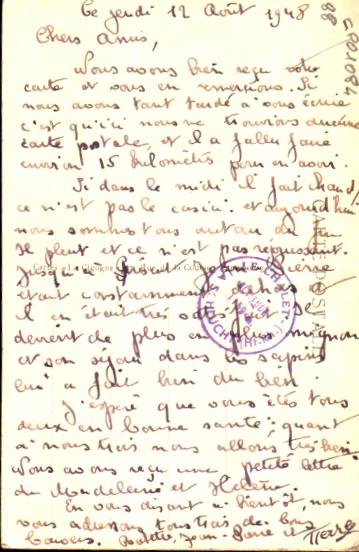 Ce jeudi 12 Août 1948
Chers Amis,
Nous avons bien reçu votre
carte et vous en remercions. Si
nous avons tant tardé à vous écrire
c'est qu'ici nous ne trouvions aucune
carte postale, et il a fallu faire
environ 15 kilomètres pour en avoir.
Si dans le midi il fait chaud,
ce n'est pas le cas ici. et aujourd'hui
nous sommes tous autour du feu
Il pleut et ce n'est pas réjouissant.
Jusqu'à Pierre
étant constamment dehors
il en était très
devient de plus en plus mignon
et son séjour dans les sapins
lui a fait bien du bien.
J'espère que vous êtes tous
deux en bonne santé; quant
à nous trois nous allons très bien.
Nous avons reçu une petite lettre
du Madeleine et Hélène.
En vous disant à bientôt, nous
vous adressons tous trois de bons
baisers. Jean-Pierre et Pierre
CARTE POSTALE